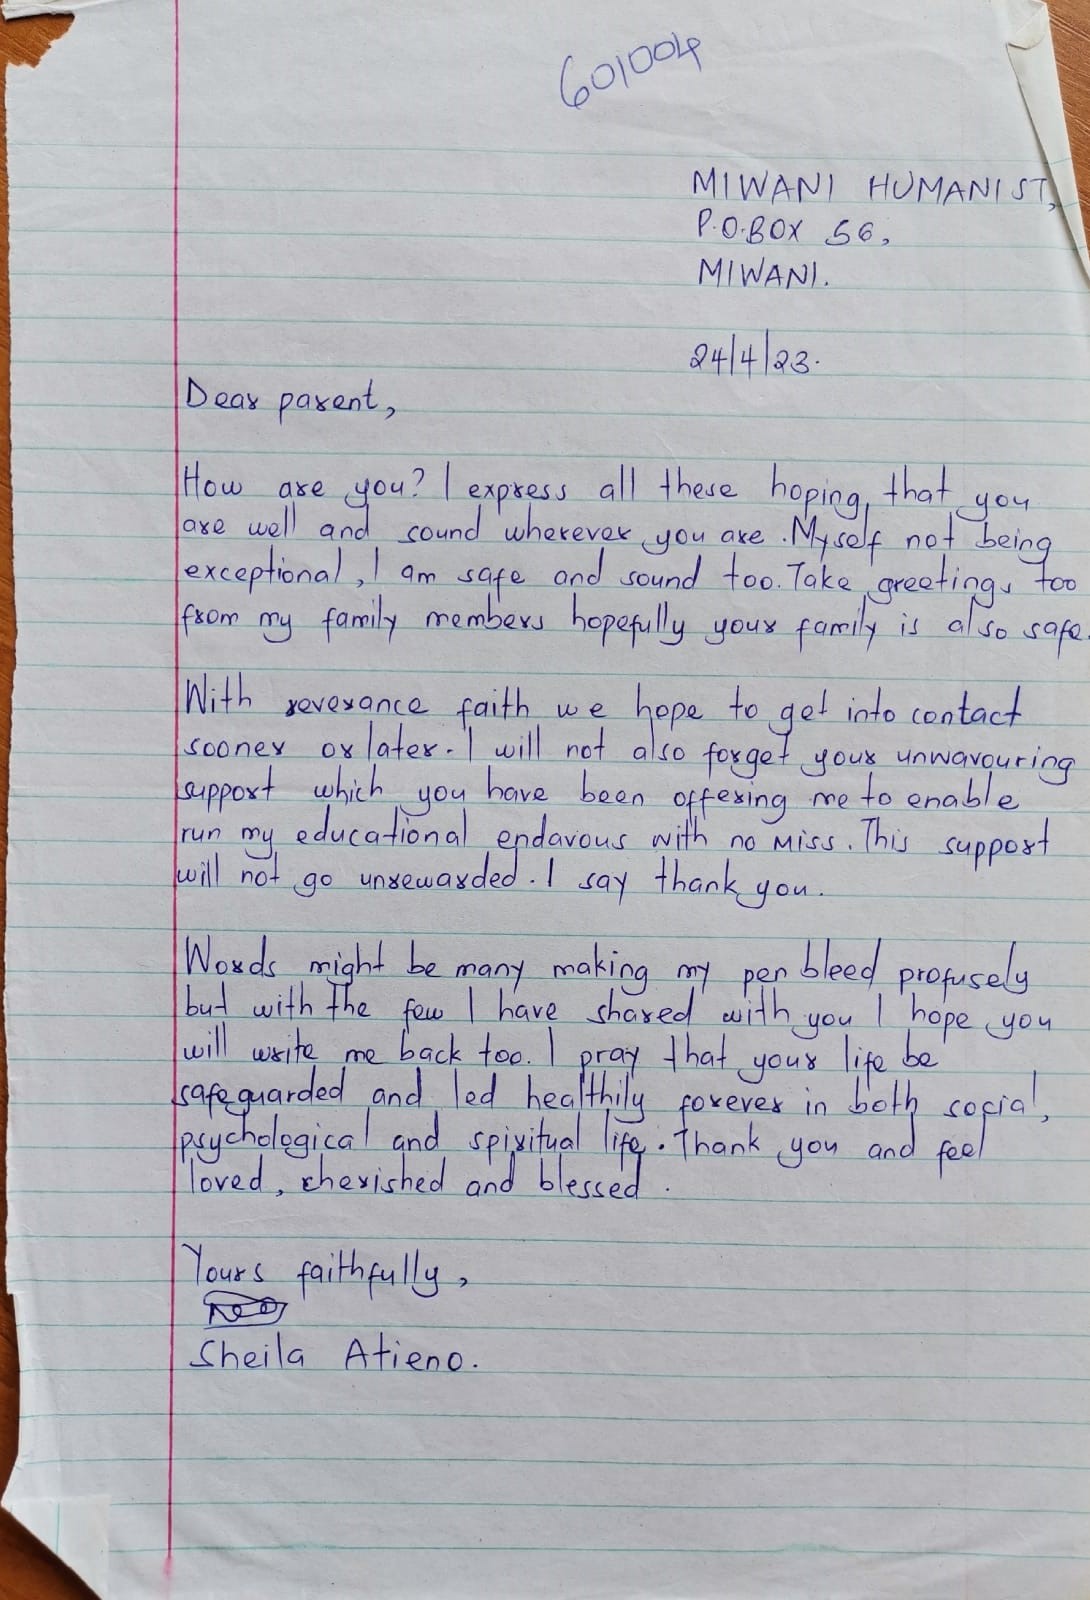 601004
MIWANI HUMANIST,
P.O.BOX 56,
MIWANI.
24/4/23.
Dear parent,
How are you? I express all these hoping that you
are well and sound wherever you are. Myself not being
exceptional, I am safe and sound too. Take greetings too
from my family members hopefully your family is also safe.
With reverance faith we hope to get into contact
sooner or later. I will not also forget your unwavouring
support which you have been offering me to enable
run my educational endavous with no miss. This support
will not go unrewarded. I say thank you.
Words might be many making my pen bleed profusely
but with the few I have shared with you I hope you
will write me back too. I pray that your life be
safeguarded and led healthily forever in both social,
psychological and spiritual life. Thank you and feel
loved, cherished and blessed.
Yours faithfully,
Sheila Atieno.